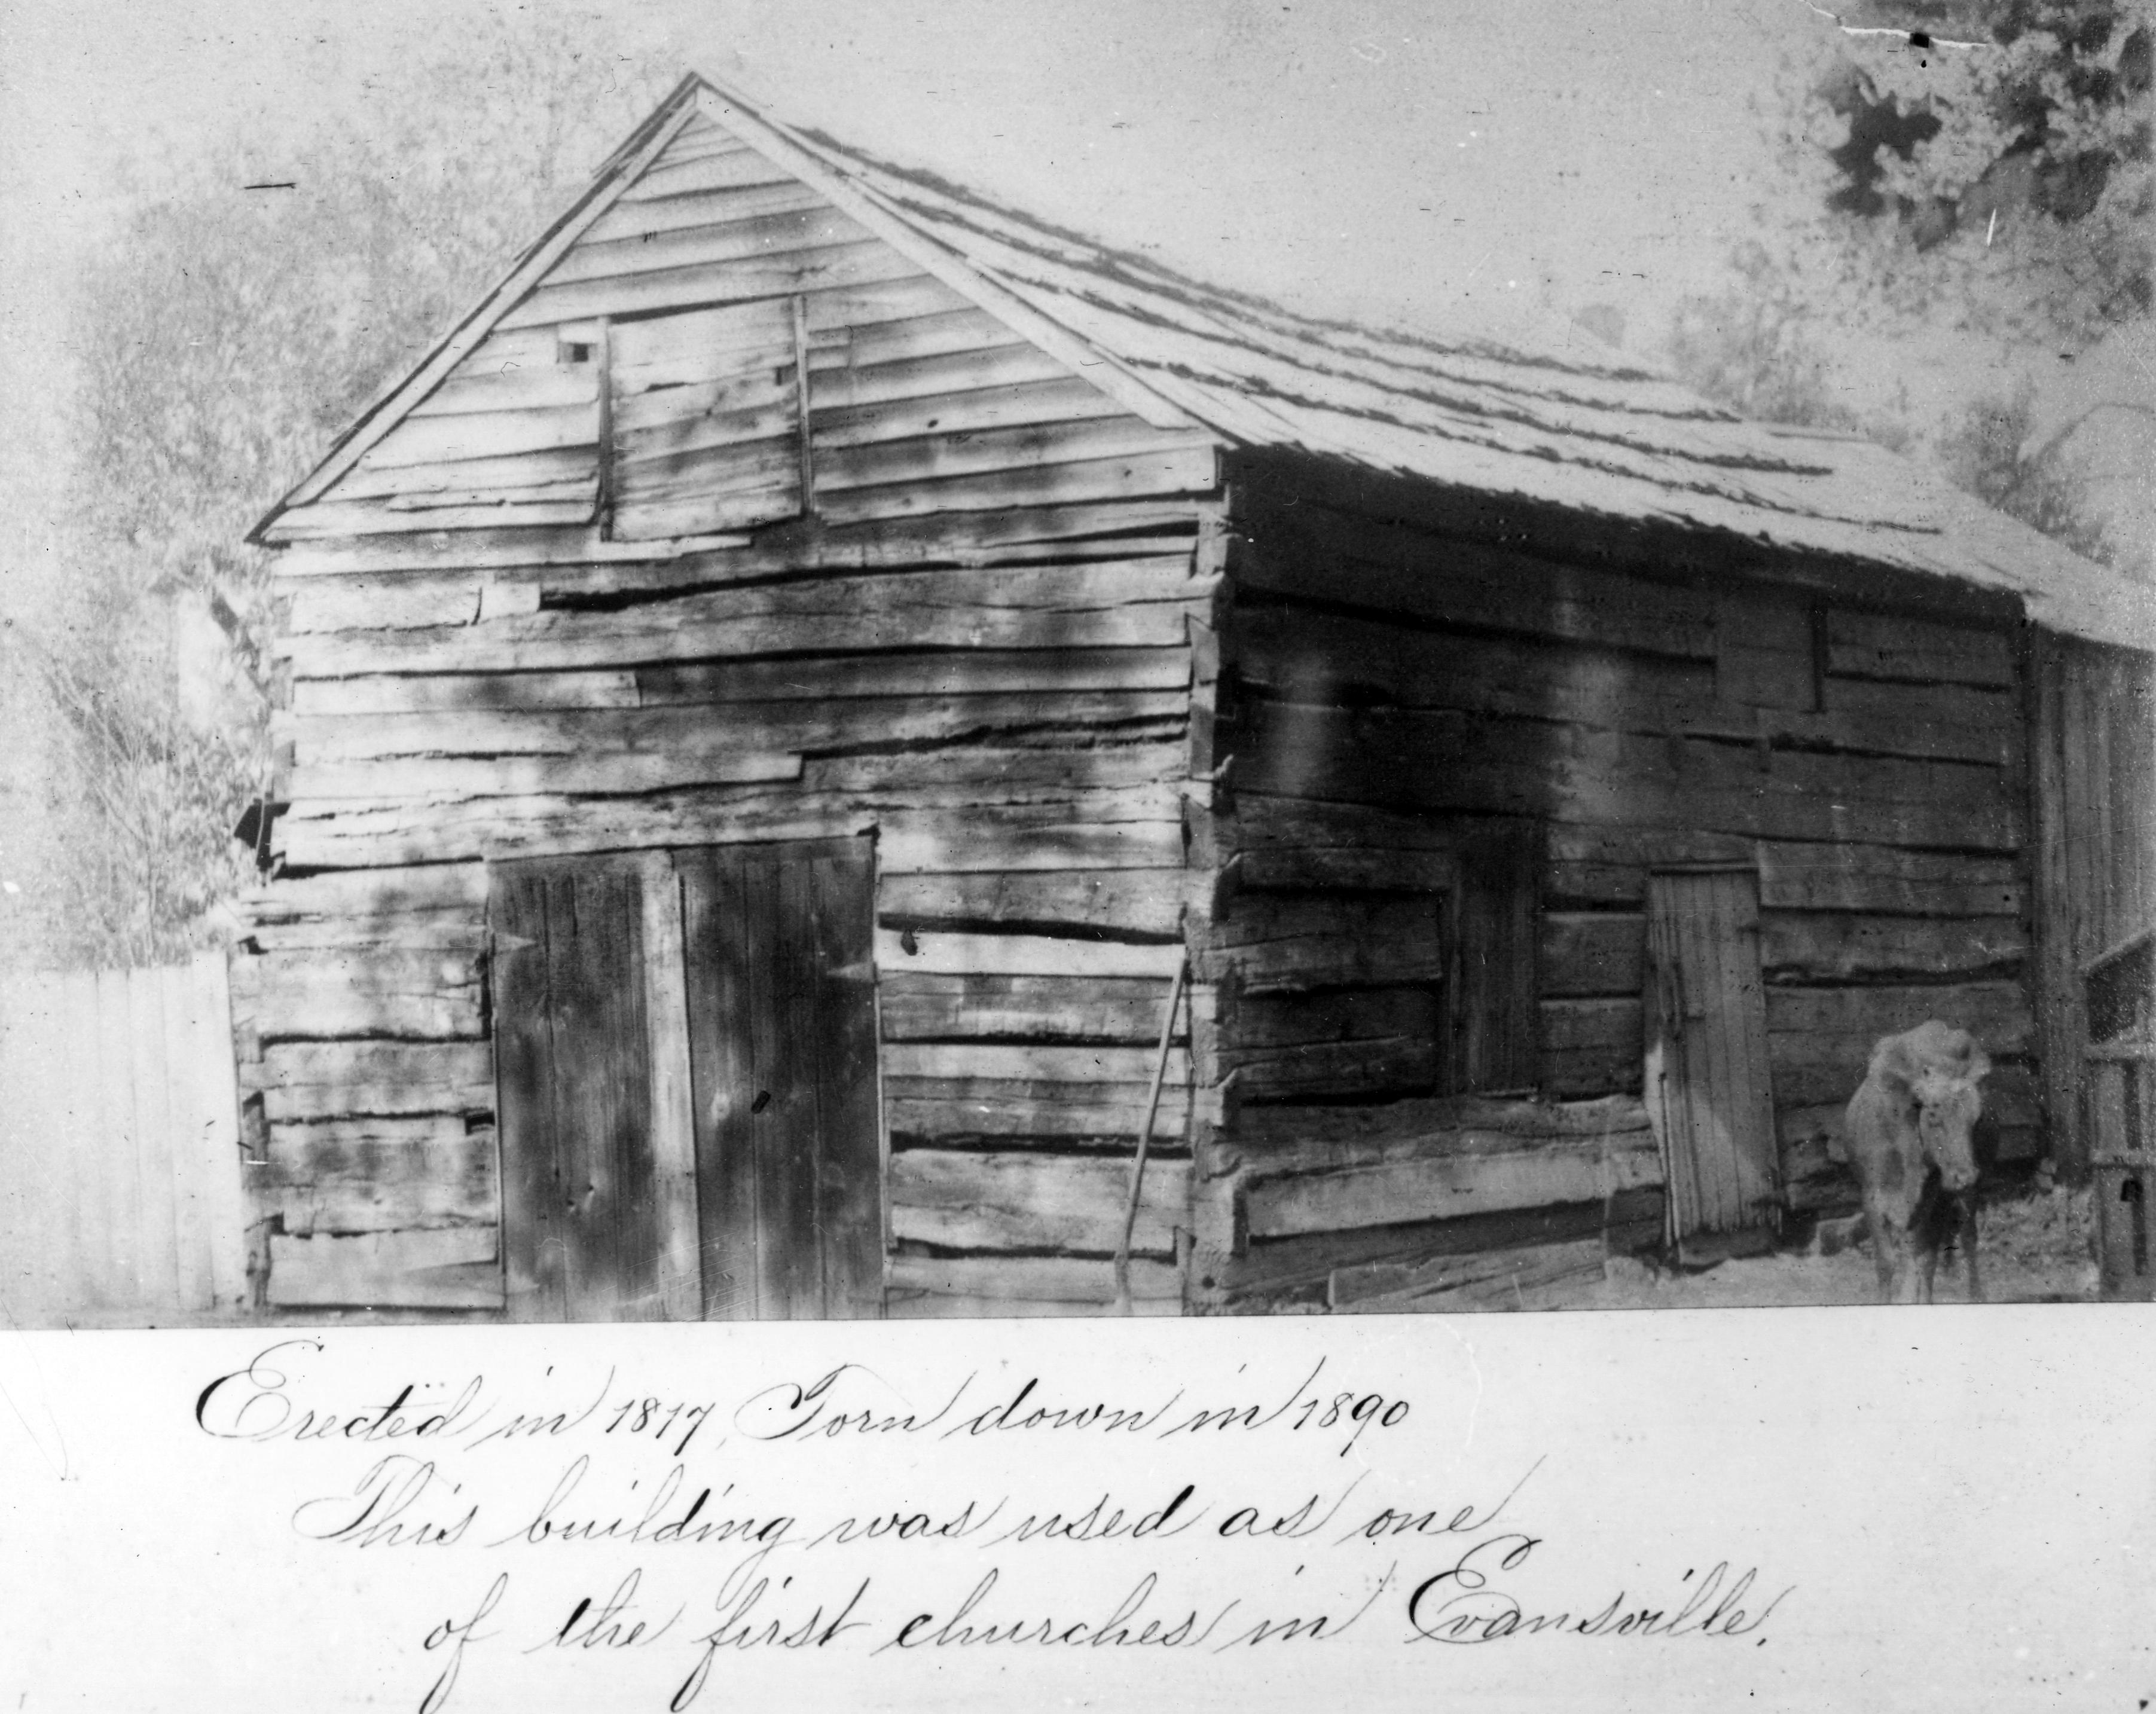 Erected in 1817, Torn down in 1890
This building was used as one
of the first churches in Evansville.